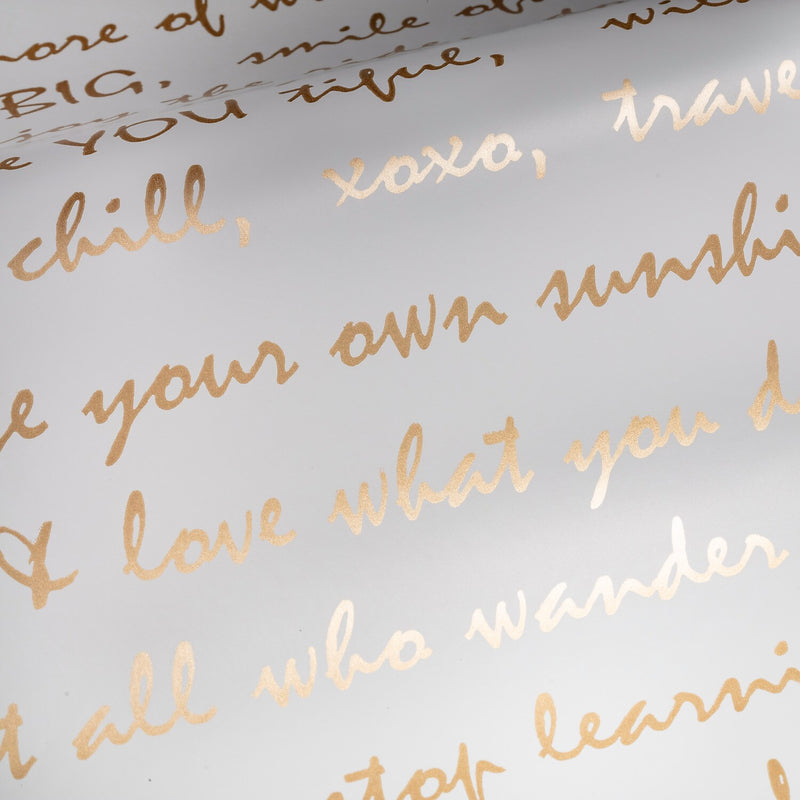 more of w
BIG, smile
e YOU tique, wil
chill, xoxo, trave
e your own sunshi
& love what you d
t all who wander
stop learni